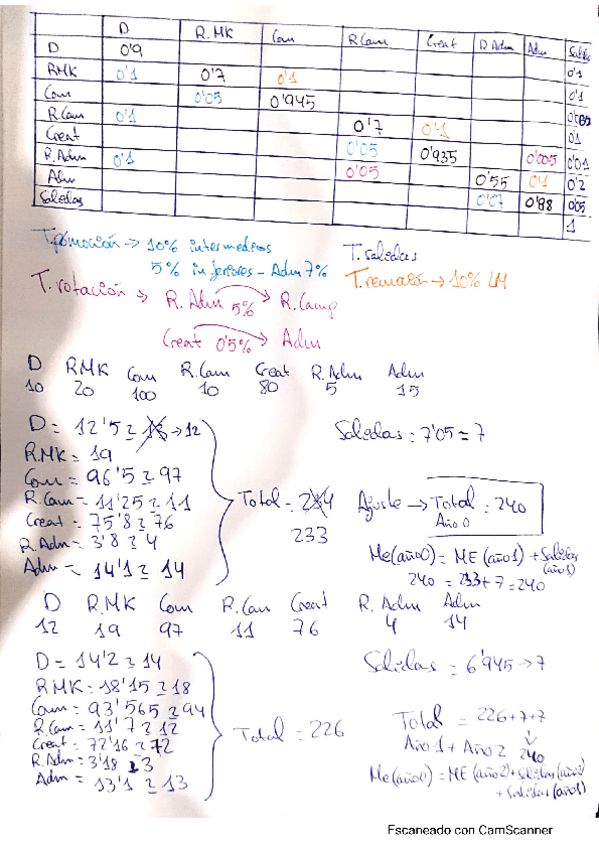 D R.MK Com R.Com Creat R.Adm Adm Salidas
D 0'9 0'1
RMK 0'1 0'7 0'1 0'1
Com 0'05 0'945 0'005
R.Com 0'1 0'7 0'1 0'1
Creat 0'05 0'935 0'005 0'01
R.Adm 0'1 0'05 0'55 0'1 0'2
Adm 0'07 0'88 0'05
Salidas 1
T.promoción → 10% intermedios
5% inferiores - Adm 7%
T.salidas
T.remisión → 10% LM
T. rotación → R. Adm 5% R. Camp
Creat 0'5% Adm
D RMK Com R.Com Creat R.Adm Adm
10 20 100 10 80 5 15
D = 12'5 ≃ 13 → 12
R.MK = 19
Com = 96'5 ≃ 97
R.Com = 11'25 ≃ 11
Creat = 75'8 ≃ 76
R.Adm = 3'8 ≃ 4
Adm = 14'1 ≃ 14
Total = 234
233
Salidas = 7'05 ≃ 7
Ajuste → Total = 240
Año 0
Me(año0) = ME (año1) + Salidas (año1)
240 = 233 + 7 = 240
D R.MK Com R.Com Creat R.Adm Adm
12 19 97 11 76 4 14
D = 14'2 ≃ 14
RMK = 18'15 ≃ 18
Com = 93'565 ≃ 94
R.Com = 11'7 ≃ 12
Creat = 72'16 ≃ 72
R.Adm = 3'18 ≃ 3
Adm = 13'1 ≃ 13
Total = 226
Salidas = 6'945 → 7
Total = 226+7+7
Año 1 + Año 2 240
Me(año0) = ME(año2) + Salidas(año2)
+ Salidas(año1)
Escaneado con CamScanner